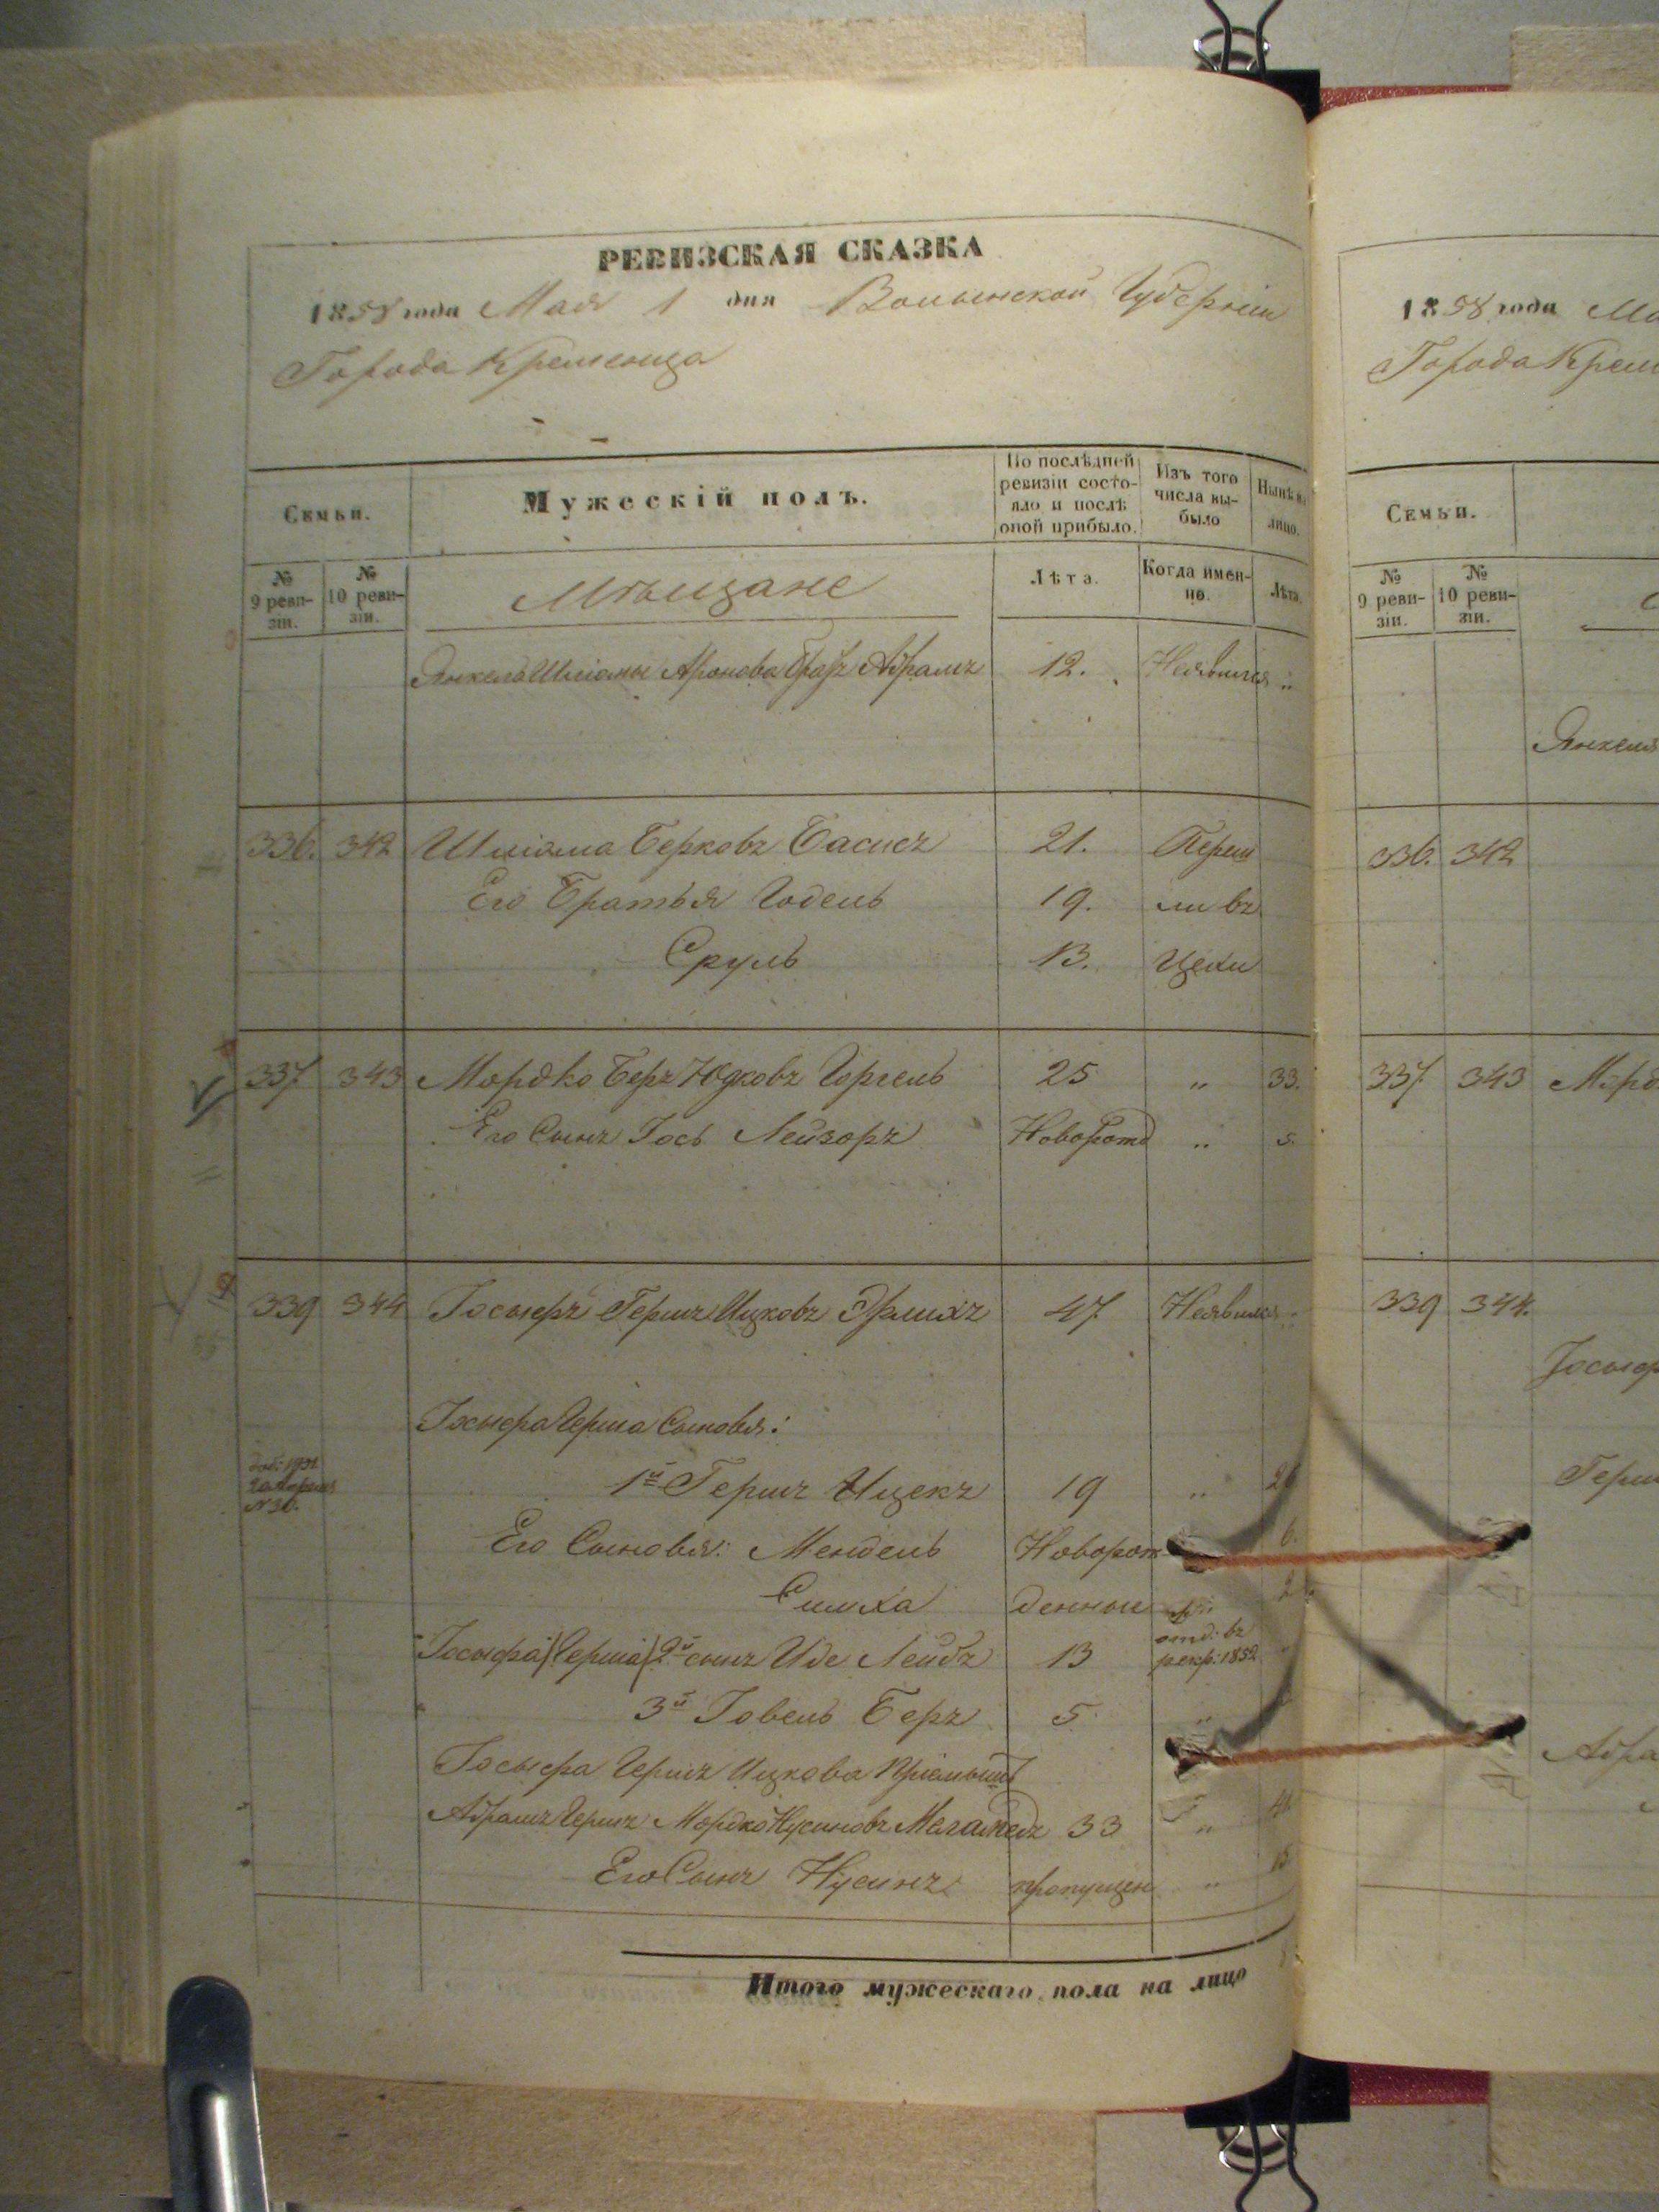 РЕВИЗСКАЯ СКАЗКА
1858 года Мая 1 дня Волынской Губерніи
Города Кременца
Семьи.
Мужескій полъ.
По послѣдней ревизіи состояло и послѣ оной прибыло.
Изъ того числа выбыло
Нынѣ на лицо.
№ 9 ревизіи.
№ 10 ревизіи.
Мѣщане
Лѣта.
Когда именно.
Лѣта.
Янкеля Шліомы Аронова Братъ Абрамъ 12. Неявился „
336. 342 Шліома Берковъ Басисъ 21. Переш
Его Братья Годель 19. ли въ
Сруль 13. Цехи
337 343 Мордко Беръ Юдковъ Горгель 25 „ 33.
Его Сынъ Іось Лейзоръ Новорожд „ 5.
339 344 Іосыфъ Гершъ Ицковъ Эрлихъ 47 Неявился „
Іосыфа Герша Сыновья:
1й Гершъ Ицекъ 19 „ 26
№ 30.
Его Сыновья: Мендель Новорож 6.
Симха денные 2
Іосыфа (Герша) 2й сынъ Иде Лейбъ 13 отд: въ рекр: 1852 „
3й Іовель Беръ 5 „
Іосыфа Гершъ Ицкова Пріемышъ
Абрамъ Гершъ Мордко Нусиновъ Меламедъ 33 „ 41.
Его Сынъ Нусинъ пропущен „ 15.
Итого мужескаго пола на лицо
1858 года
Города Крем
Семьи.
№ 9 ревизіи.
№ 10 ревизіи.
Янкеля
336. 342
337 343 Морд
339 344.
Іосыф
Герш
Абра